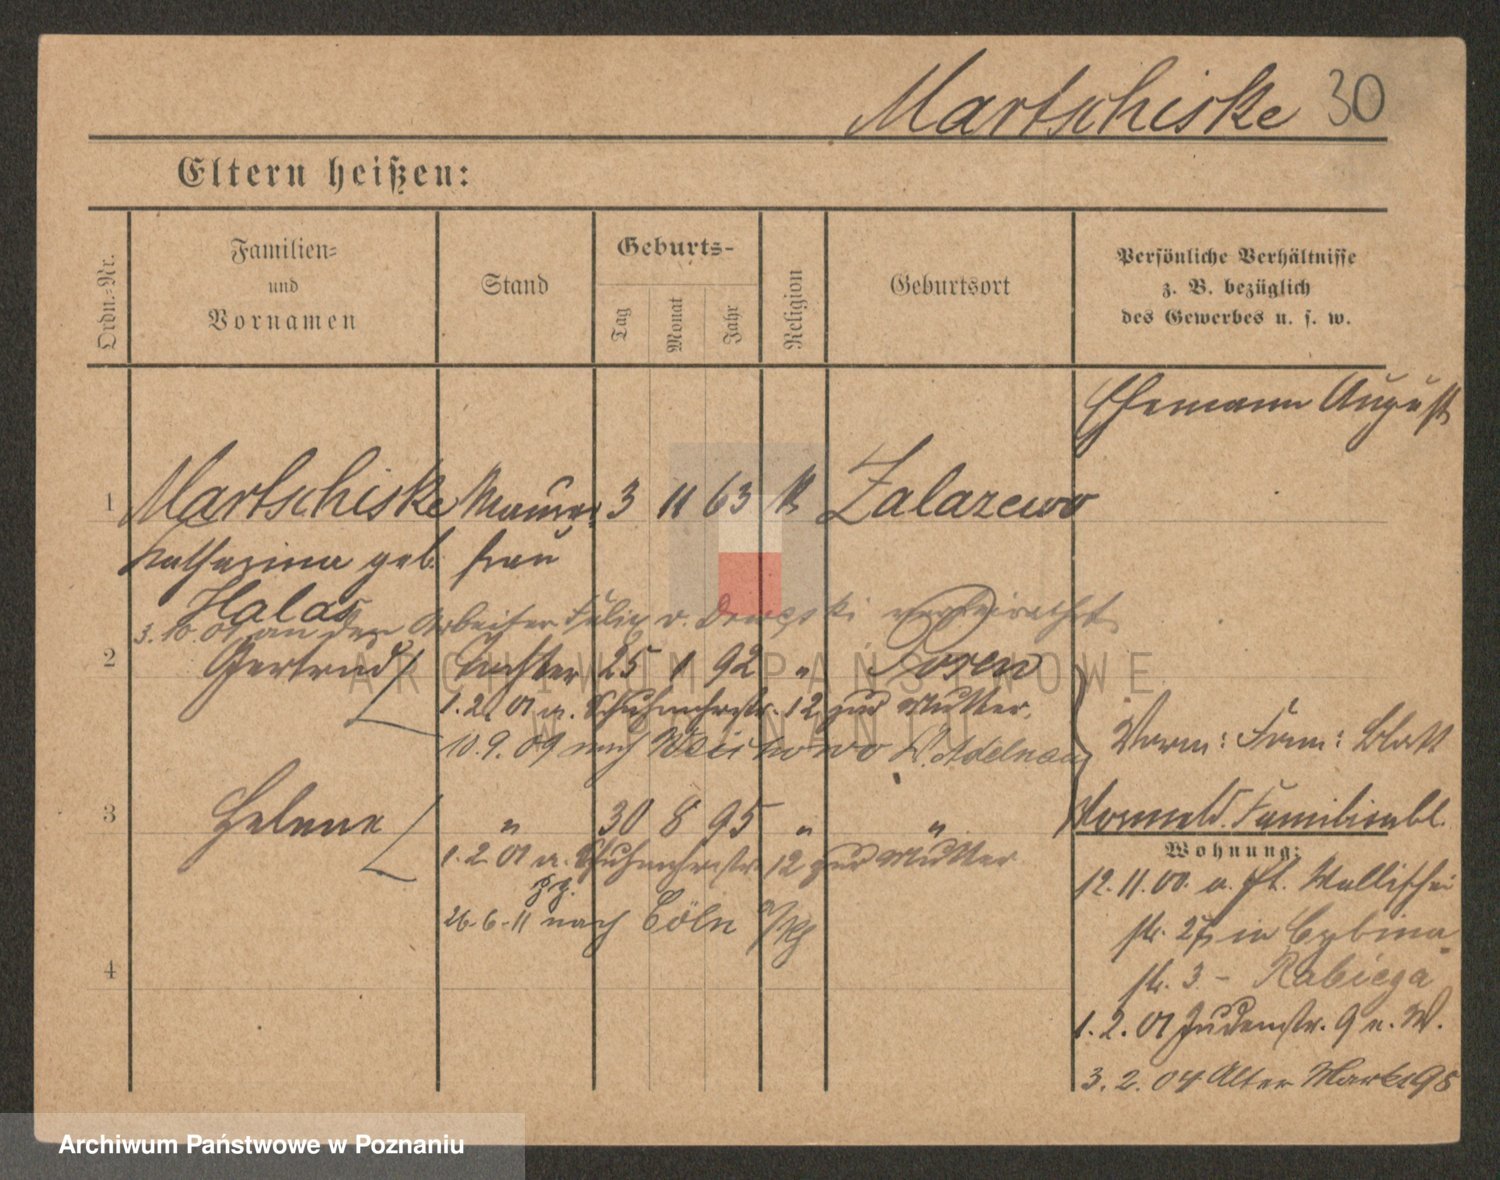 Martschiske 30
Eltern heißen:
Ordn.-Nr.
Familien-
und
Vornamen
Stand
Geburts-
Tag
Monat
Jahr
Religion
Geburtsort
Persönliche Verhältnisse
z. B. bezüglich
des Gewerbes u. s. w.
Ehemann August
1 Martschiske Maurer 3 11 63 K Zalazewo
Katharina geb. frau
Halas
3. 10. 01 an den Arbeiter Felix v. verheirathet
2 Gertrud Tochter 25 1 92 " Posen
1. 2. 01 a. Schuhmacherstr. 12 zur Mutter.
10. 9. 09 nach Adelnau
Vorm: Fam: Blatt
3 Helene " 30 8 95 " "
Vormeld. Familienbl.
1. 2. 01 a. Schuhmacherstr. 12 zur Mutter
26. 6. 11 nach Cöln a/Rh
Wohnung:
12. 11. 00. a. Pt. Wallischei
str. 27 in Cybina
str. 3 - Rabiega
1. 2. 01 Judenstr. 9 n. W.
3. 2. 04 Alter Markt 98
4
ARCHIWUM PAŃSTWOWE
W POZNANIU
Archiwum Państwowe w Poznaniu